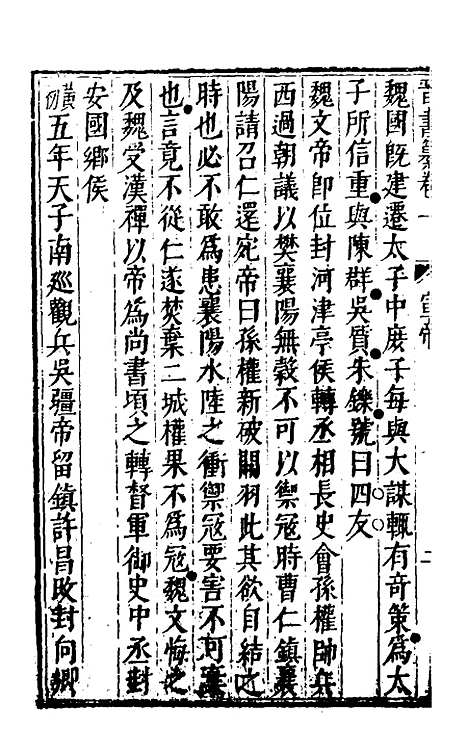 晉書纂卷一 宣帝 二
魏國既建遷太子中庶子每與大謀輒有奇策爲太
子所信重與陳群吳質朱鑠號曰四友
魏文帝卽位封河津亭侯轉丞相長史會孫權帥兵
西過朝議以樊襄陽無穀不可以禦寇時曹仁鎮襄
陽請召仁還宛帝曰孫權新破關羽此其欲自結之
時也必不敢爲患襄陽水陸之衝禦寇要害不可棄
也言竟不從仁遂焚棄二城權果不爲寇魏文悔之
及魏受漢禪以帝爲尚書頃之轉督軍御史中丞封
安國鄉侯
黃初五年天子南巡觀兵吳疆帝留鎮許昌改封向鄉